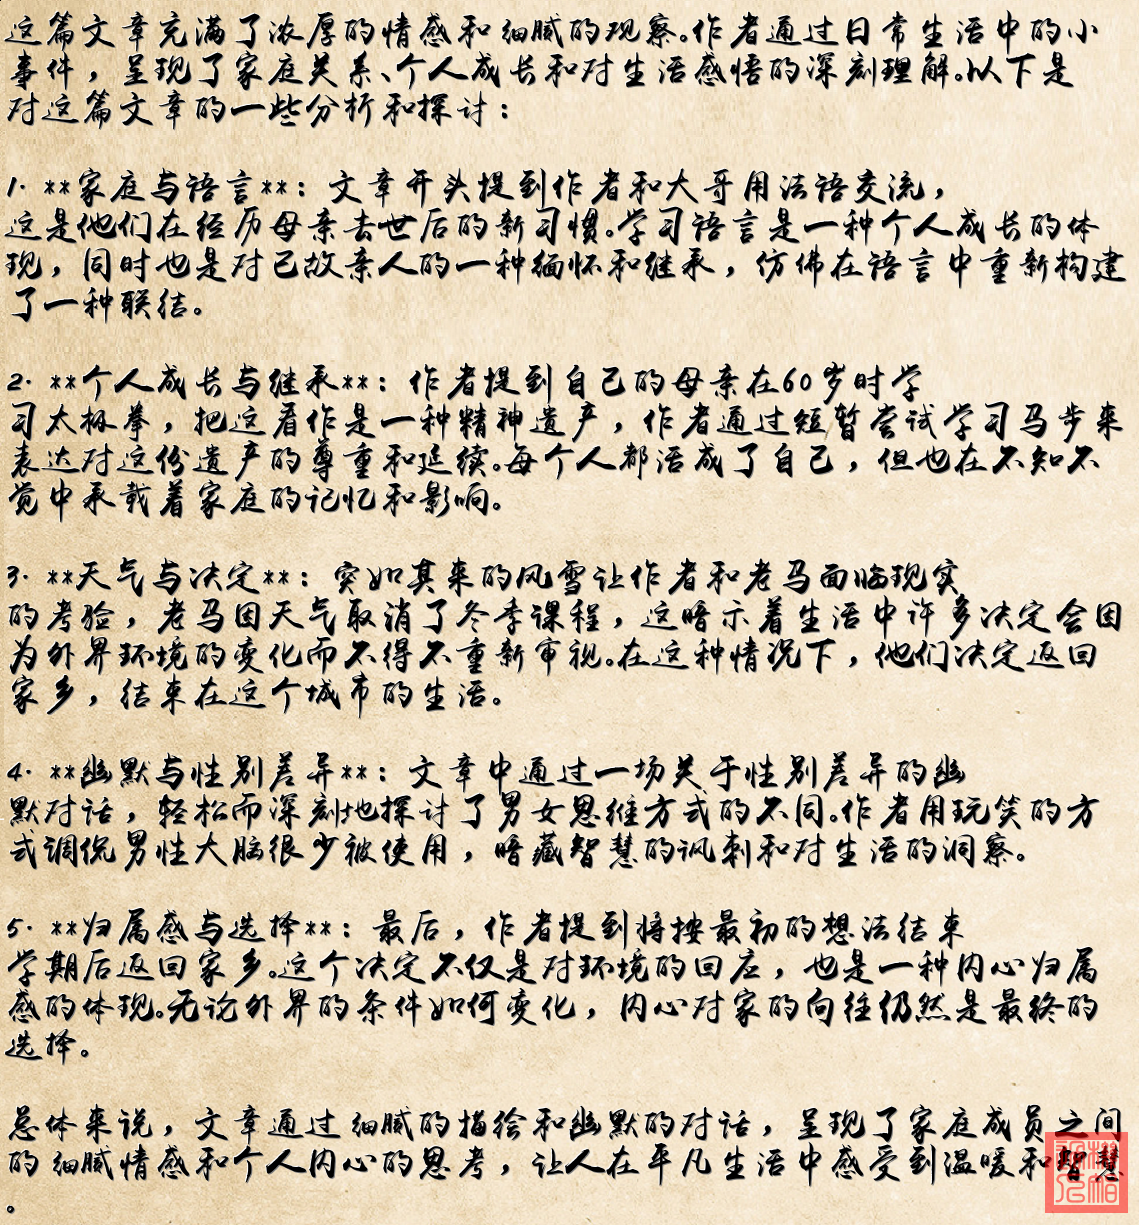 这篇文章充满了浓厚的情感和细腻的观察。作者通过日常生活中的小
事件，呈现了家庭关系、个人成长和对生活感悟的深刻理解。以下是
对这篇文章的一些分析和探讨：
1. **家庭与语言**：文章开头提到作者和大哥用法语交流，
这是他们在经历母亲去世后的新习惯。学习语言是一种个人成长的体
现，同时也是对已故亲人的一种缅怀和继承，仿佛在语言中重新构建
了一种联结。
2. **个人成长与继承**：作者提到自己的母亲在60岁时学
习太极拳，把这看作是一种精神遗产，作者通过短暂尝试学习马步来
表达对这份遗产的尊重和延续。每个人都活成了自己，但也在不知不
觉中承载着家庭的记忆和影响。
3. **天气与决定**：突如其来的风雪让作者和老马面临现实
的考验，老马因天气取消了冬季课程，这暗示着生活中许多决定会因
为外界环境的变化而不得不重新审视。在这种情况下，他们决定返回
家乡，结束在这个城市的生活。
4. **幽默与性别差异**：文章中通过一场关于性别差异的幽
默对话，轻松而深刻地探讨了男女思维方式的不同。作者用玩笑的方
式调侃男性大脑很少被使用，暗藏智慧的讽刺和对生活的洞察。
5. **归属感与选择**：最后，作者提到将按最初的想法结束
学期后返回家乡。这个决定不仅是对环境的回应，也是一种内心归属
感的体现。无论外界的条件如何变化，内心对家的向往仍然是最终的
选择。
总体来说，文章通过细腻的描绘和幽默的对话，呈现了家庭成员之间
的细腻情感和个人内心的思考，让人在平凡生活中感受到温暖和智慧
。